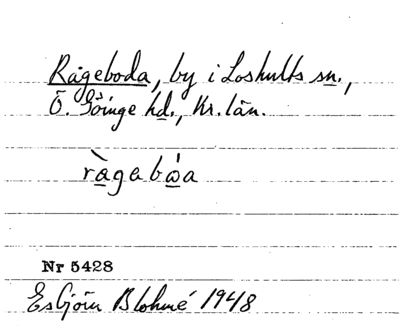 Rågeboda, by i Loshults sn.,
Ö. Göinge hd., Kr. län.
ràgebǫ́a
Nr 5428
Esbjörn Blohmé 1948